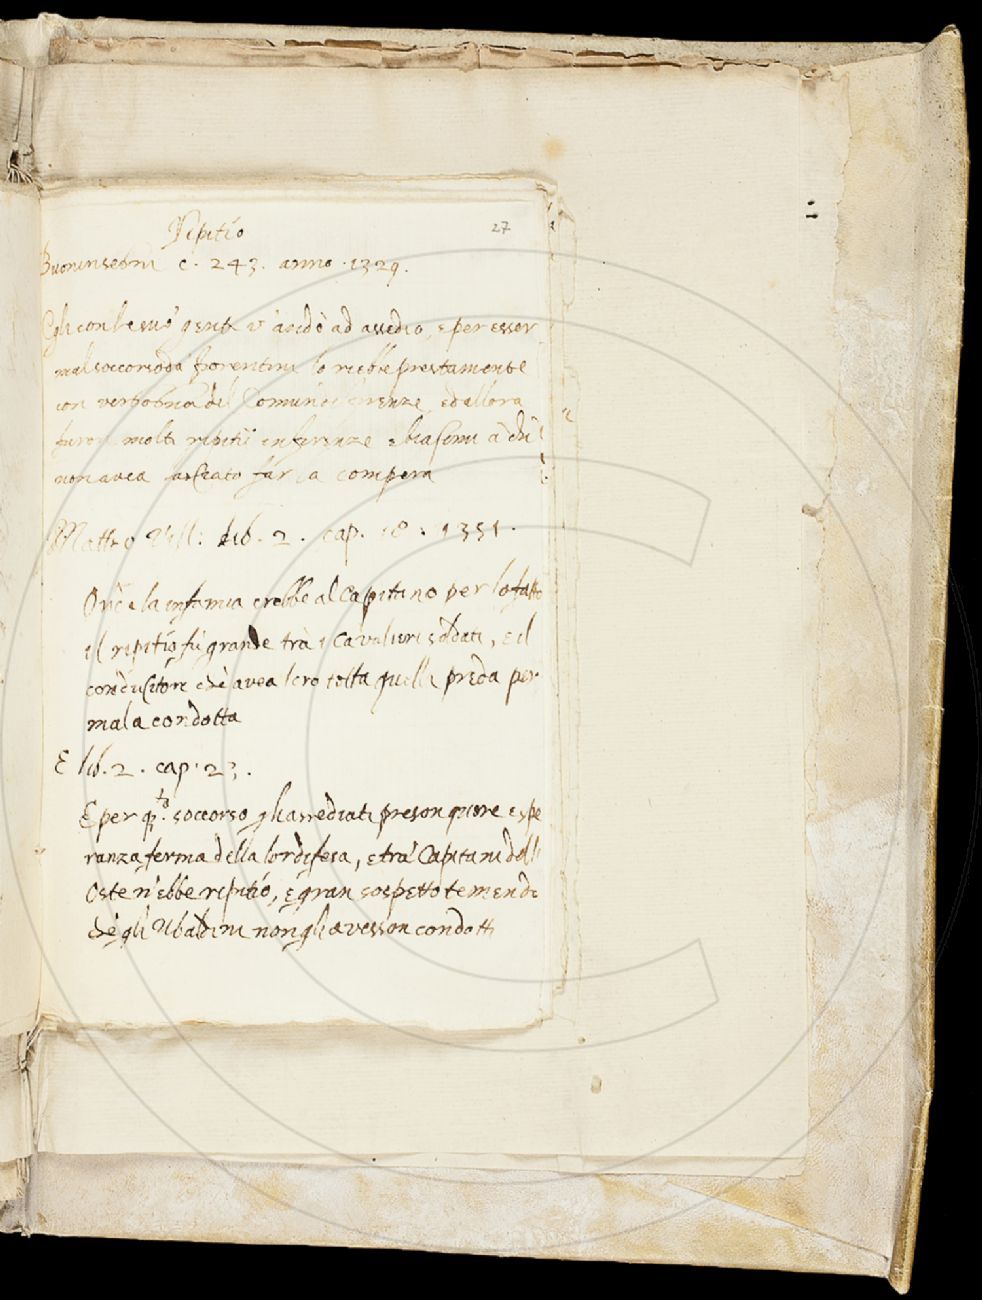 Ripitio
27
Buoninsegni c. 243. anno. 1329.
Egli con le suo gente v'andò ad assedio, e per esser
mal soccorso da fiorentini lo riebbe prestamente
con vergogna del Comun di firenze, ed allora
furon molti ripitii in firenze e biasimi a chi
non avea lasciato far la compera
Matteo Vill: lib. 2. cap. 18: 1351.
Onde la infamia crebbe al capitano per lo fatto
il ripitio fu grande trà i Cavalieri soldati, e il
conducitore chè avea loro tolta quella preda per
mala condotta
E lib. 2. cap. 23.
E per q.to soccorso gli assediati preson quore e spe
ranza ferma della lor difesa, e trà Capitani dell
Oste n'ebbe ripitio, e gran sospetto temendo
chè gli Ubaldini non gli avesson condotti